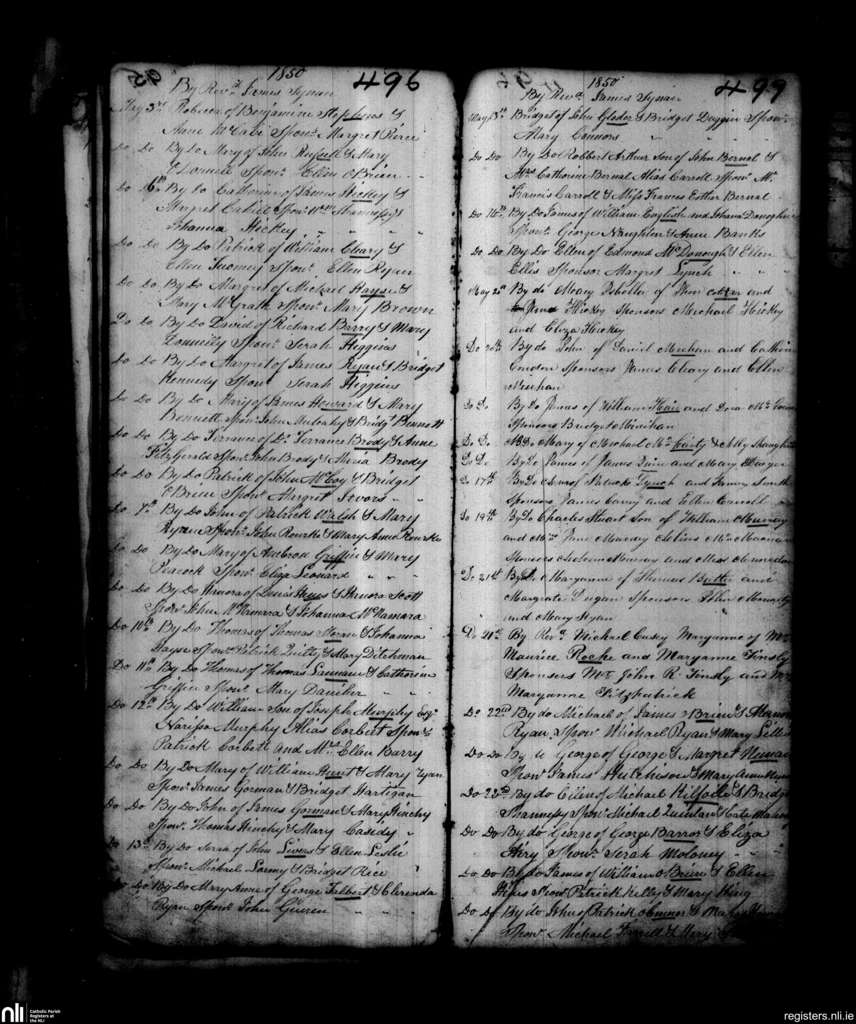 1850
496
By Revd. James Synan
May 3rd. Rebecca of Benjamine Stephens &
Anne McCabe Sponr. Margret Rice
Do Do By Do Mary of John Russell & Mary
O'Donnell Sponr. Ellen O'Brien
Do 6th By Do Catherine of James Hickey &
Margret Cahill Sponr. Wm. Shannessy &
Johanna Hickey
Do Do By Do Patrick of William Cleary &
Ellen Twomey Sponr. Ellen Ryan
Do Do By Do Margret of Michael Hayes &
Mary McGrath Sponr. Mary Brown
Do Do By Do David of Richard Barry & Mary
Donnelly Sponr. Serah Higgins
Do Do By Do Margret of James Ryan & Bridget
Kennedy Sponr. Serah Higgins
Do Do By Do Mary of James Howard & Mary
Bennett Sponr. John Mulcahy & Bridgt. Bennett
Do Do By Do Terrance of Dr. Terrance Brody & Anne
Fitzgerald Sponr. John Brody & Maria Brody
Do Do By Do Patrick of John McCoy & Bridget
O'Brien Sponr. Margret Ivors
Do 7th By Do John of Patrick Walsh & Mary
Ryan Sponr. John Rourke & Mary Anne Rourke
Do Do By Do Mary of Ambrose Griffin & Mary
Peacock Sponr. Eliza Leonard
Do Do By Do Honora of Denis Hayes & Honora Scott
Sponr. John McNamara & Johanna McNamara
Do 10th By Do Thomas of Thomas Moran & Johanna
Sponr. Patrick Quilty & Mary Ditchman
Do 11th By Do Thomas of Thomas & Catherine
Griffin Sponr. Mary Danihir
Do 12th By Do William Son of Joseph Murphy Esqr.
Murphy Alias Corbett Sponr.
Patrick Corbett and Mrs. Ellen Barry
Do Do By Do Mary of William Hunt & Mary Ryan
Sponr. James Gorman & Bridget Hartigan
Do Do By Do John of James Gorman & Mary Hinchy
Sponr. Thomas Hinchy & Mary Casidy
Do 13th By Do Serah of John Livers & Ellen Leslie
Sponr. Michael & Bridget Rice
Do Do By Do Mary Anne of George & Clerenda
Ryan Sponr. John
1850
499
By Revd. James Synan
May 13th. Bridget of John & Bridget Duggin Sponr.
Mary Connors
Do Do By Do Robbert Arthur Son of John Bernal &
Mrs. Catherine Bernal Alias Carroll Sponr. Mr.
Francis Carroll & Miss Frances Esther Bernal
Do 16th. By Do James of William English and Johana Donoghue
Sponr. George Naughten & Anne Banks
Do Do By Do Ellen of Edmond McDonough & Ellen
Ellis Sponsor Margret Lynch
May By do Mary Isbella of and
Hickey Sponsors Michael Hickey
and Eliza Hickey
Do By do John of Daniel Meehan and
Sponsors James Cleary and Ellen
Meehan
Do Do By Do James of William and
Sponsors Bridget Minihan
Do Do By Do Mary of Michael McCarty &
Do Do By Do James of James and Mary
Do 17th By Do of Patrick Lynch and
Sponsors James and Ellen
Do 19th By Do Charles Stuart Son of William Murray
and Mrs. Jane Murray
Sponsors Murray and Miss
Do 21st By Do Maryanne of Thomas Butler and
Margrate Dugan Sponsors John
and Mary Ryan
Do 21st By Revd. Michael Casey Maryanne of Mr.
Maurice Roche and Maryanne Tinsly
Sponsors Mr. John R. Tinsly and
Maryanne Fitzpatrick
Do 22nd By do Michael of James &
Ryan Sponr. Michael Ryan & Mary
Do Do By do George of George & Margret
Sponr. James Hutchison & Mary Anne
Do 22nd By do Ellen of Michael Kilfoile & Bridget
Shannessy Sponr. Michael Quinlan & Kate
Do Do By do George of George Barron & Eliza
Airy Sponr. Serah Moloney
Do Do By Do James of William & Ellen
Sponr. Patrick Kelly & Mary King
Do Do By do John of Patrick Connor & Mary
Sponr. Michael Farrell & Mary
nli
Catholic Parish
Registers at
the NLI
registers.nli.ie